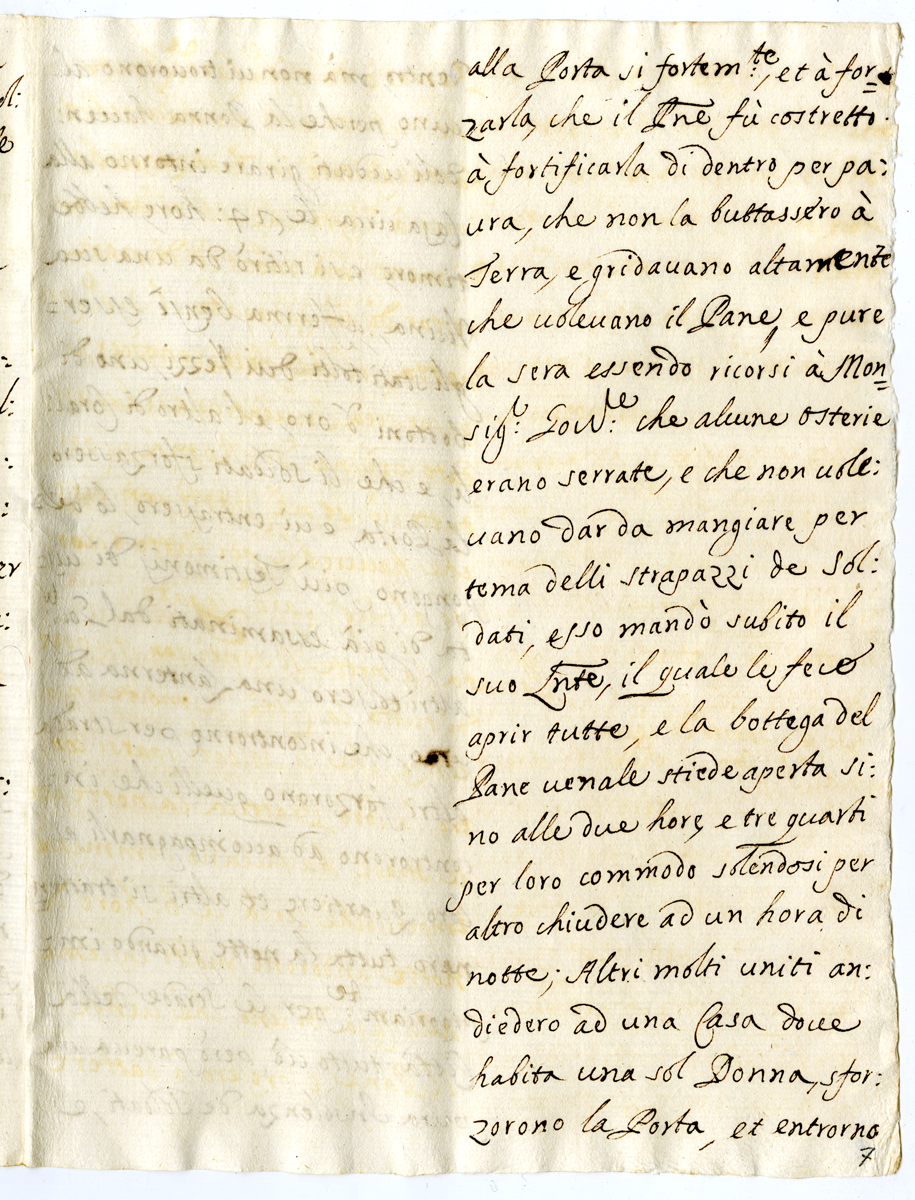 alla Porta si fortem:te, et à for=
zarla, che il Pne fù costretto
à fortificarla di dentro per pa:
ura, che non la buttassero à
Terra, e gridavano altamente
che volevano il Pane, e pure
la sera essendo ricorsi à Mon=
sig:r Gov:re che alcune osterie
erano serrate, e che non vole:
vano dar da mangiare per
tema delli strapazzi de sol:
dati, esso mandò subito il
suo Tnte, il quale le fece
aprir tutte, e la bottega del
Pane venale stiede aperta si:
no alle due hore, e tre quarti
per loro commodo solendosi per
altro chiudere ad un hora di
notte; Altri molti uniti an:
diedero ad una Casa dove
habita una sol Donna, sfor:
zorono la Porta, et entrorno
7